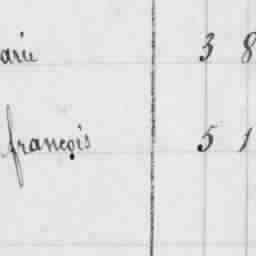 arie 3 8
françois 5 1